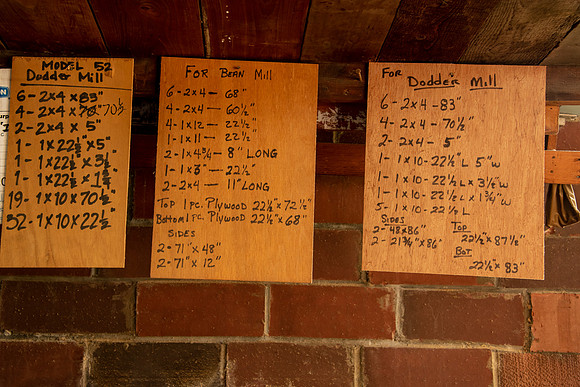 MODEL 52
Dodder Mill
6 - 2x4 x 83"
4 - 2x4 x 70" 70½"
2 - 2x4 x 5"
1 - 1x22½"x5"
1 - 1x22½ x 3½"
1 - 1x22½ x 1¾"
19 - 1x10x70½"
52 - 1x10x22½"
FOR BEAN Mill
6 - 2x4 — 68"
4 - 2x4 — 60½"
4 - 1x12 — 22½"
1 - 1x11 — 22½"
2 - 1x4¾ - 8" LONG
1 - 1x3" — 22½"
2 - 2x4 — 11" LONG
Top 1 PC. Plywood 22½"x 72½"
Bottom 1 PC. Plywood 22½"x 68"
SIDES
2 - 71"x 48"
2 - 71"x 12"
FOR
Dodder Mill
6 - 2x4 - 83"
4 - 2x4 - 70½"
2 - 2x4 - 5"
1 - 1x10 - 22½"L 5"W
1 - 1x10 - 22½ L x 3½"W
1 - 1x10 - 22½ L x 1¾"W
5 - 1x10 - 22½ L
SIDES
2 - 48x86"
2 - 21¾"x86"
TOP
22½"x 87½"
BOT
22½"x 83"